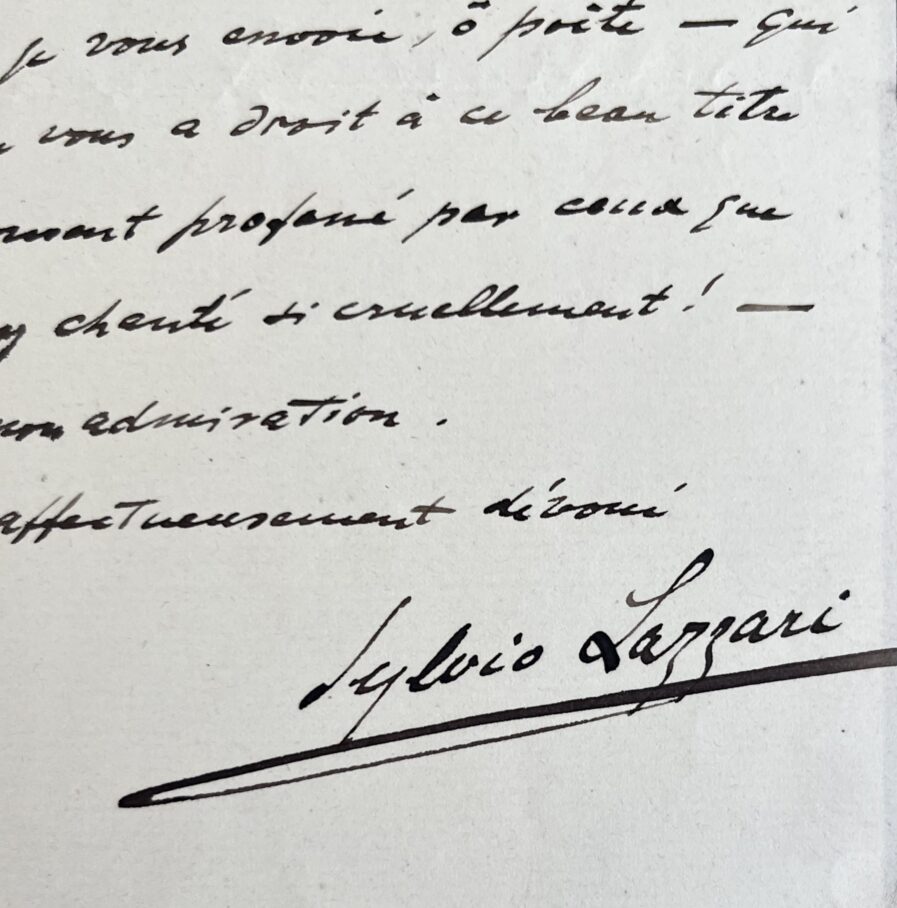 je vous envoie, ô poète — qui
vous a droit à ce beau titre
profané par ceux que
chanté si cruellement ! —
mon admiration.
affectueusement dévoué
Sylvio Lazzari